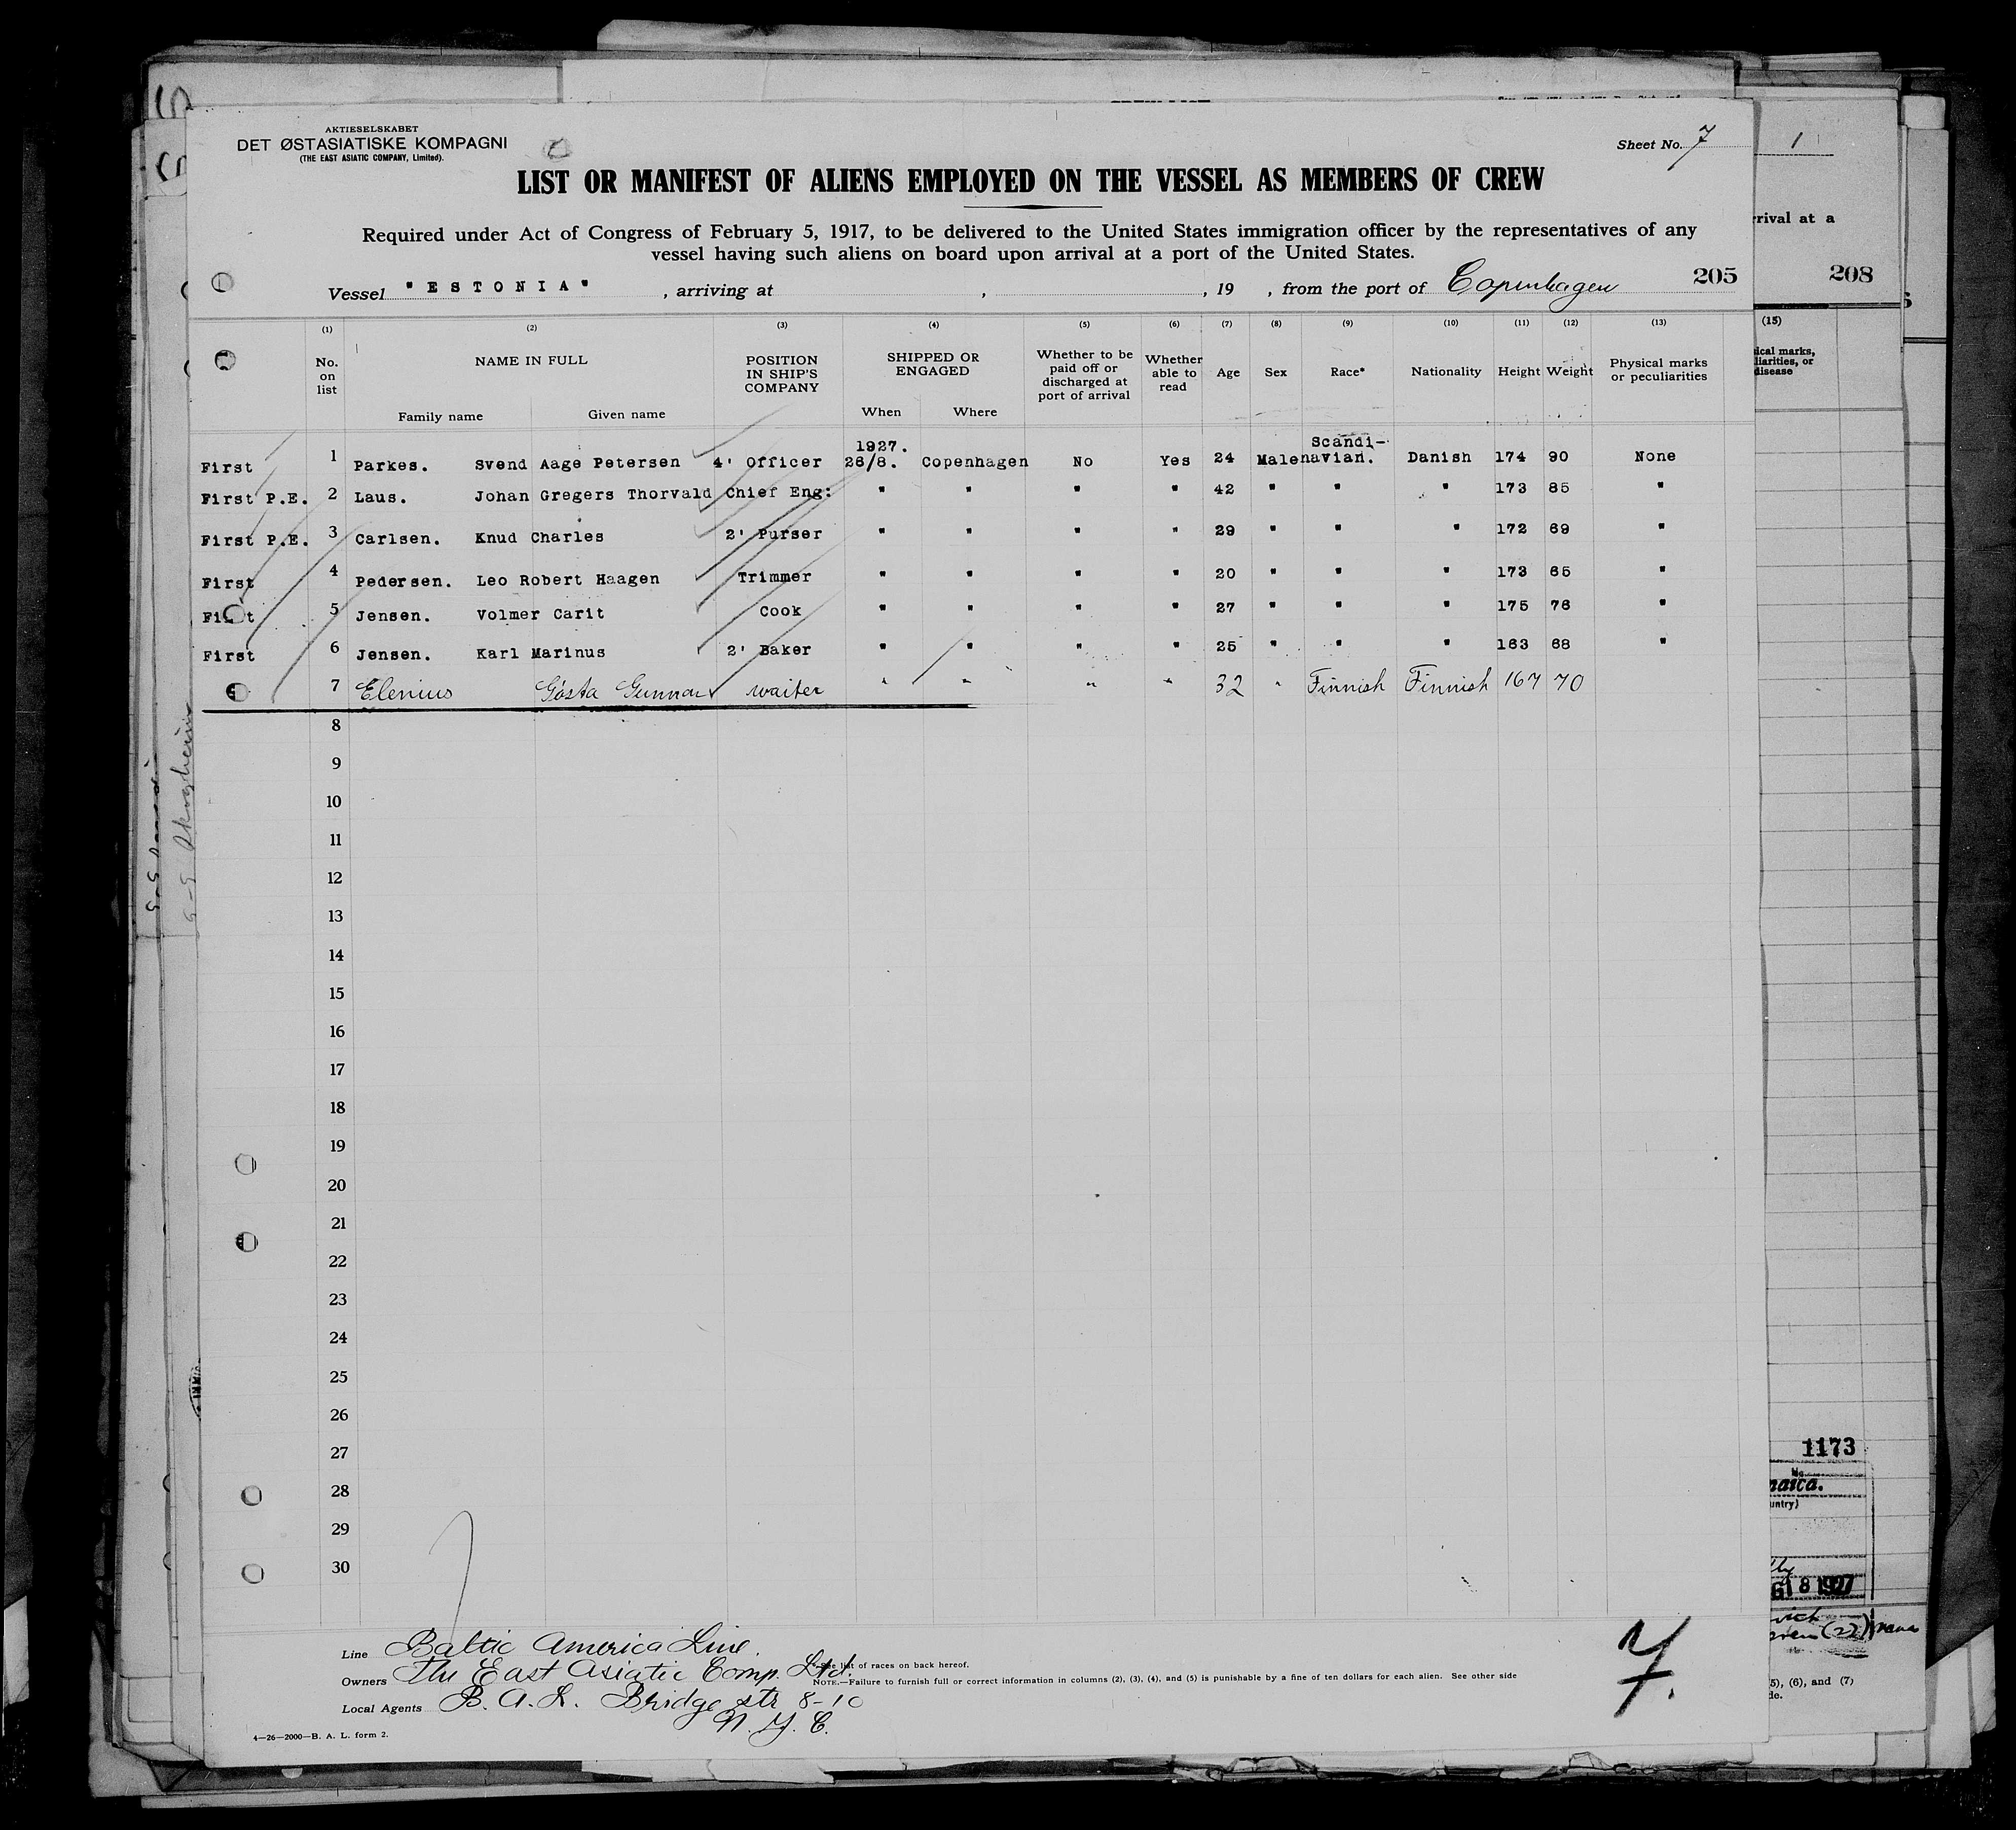 AKTIESELSKABET
DET ØSTASIATISKE KOMPAGNI
(THE EAST ASIATIC COMPANY, Limited).
Sheet No. 7
1
LIST OR MANIFEST OF ALIENS EMPLOYED ON THE VESSEL AS MEMBERS OF CREW
Required under Act of Congress of February 5, 1917, to be delivered to the United States immigration officer by the representatives of any
vessel having such aliens on board upon arrival at a port of the United States.
rival at a
Vessel "ESTONIA", arriving at , , 19 , from the port of Copenhagen 205
208
(1) (2) (3) (4) (5) (6) (7) (8) (9) (10) (11) (12) (13) (15)
No. on list NAME IN FULL Family name Given name POSITION IN SHIP'S COMPANY SHIPPED OR ENGAGED When Where Whether to be paid off or discharged at port of arrival Whether able to read Age Sex Race* Nationality Height Weight Physical marks or peculiarities
ical marks,
liarities, or
disease
1927. Scandi-
First 1 Parkes. Svend Aage Petersen 4' Officer 26/8. Copenhagen No Yes 24 Male navian. Danish 174 90 None
First P.E. 2 Laus. Johan Gregers Thorvald Chief Eng: " " " " 42 " " " 173 85 "
First P.E. 3 Carlsen. Knud Charles 2' Purser " " " " 29 " " " 172 69 "
First 4 Pedersen. Leo Robert Haagen Trimmer " " " " 20 " " " 173 65 "
First 5 Jensen. Volmer Carit Cook " " " " 27 " " " 175 76 "
First 6 Jensen. Karl Marinus 2' Baker " " " " 25 " " " 163 68 "
7 Elenius Gösta Gunnar waiter " " " " 32 " Finnish Finnish 167 70
8
9
10
11
12
13
14
15
16
17
18
19
20
21
22
23
24
25
26
27
28
29
30
1173
maica.
untry)
8 1927
Line Baltic America Line.
Owners The East Asiatic Comp. Ltd.
Local Agents B. A. L. Bridge str 8-10
N. Y. C.
*See list of races on back hereof.
NOTE.—Failure to furnish full or correct information in columns (2), (3), (4), and (5) is punishable by a fine of ten dollars for each alien. See other side
4—26—2000—B. A. L. form 2.
7.
(5), (6), and (7)
de.